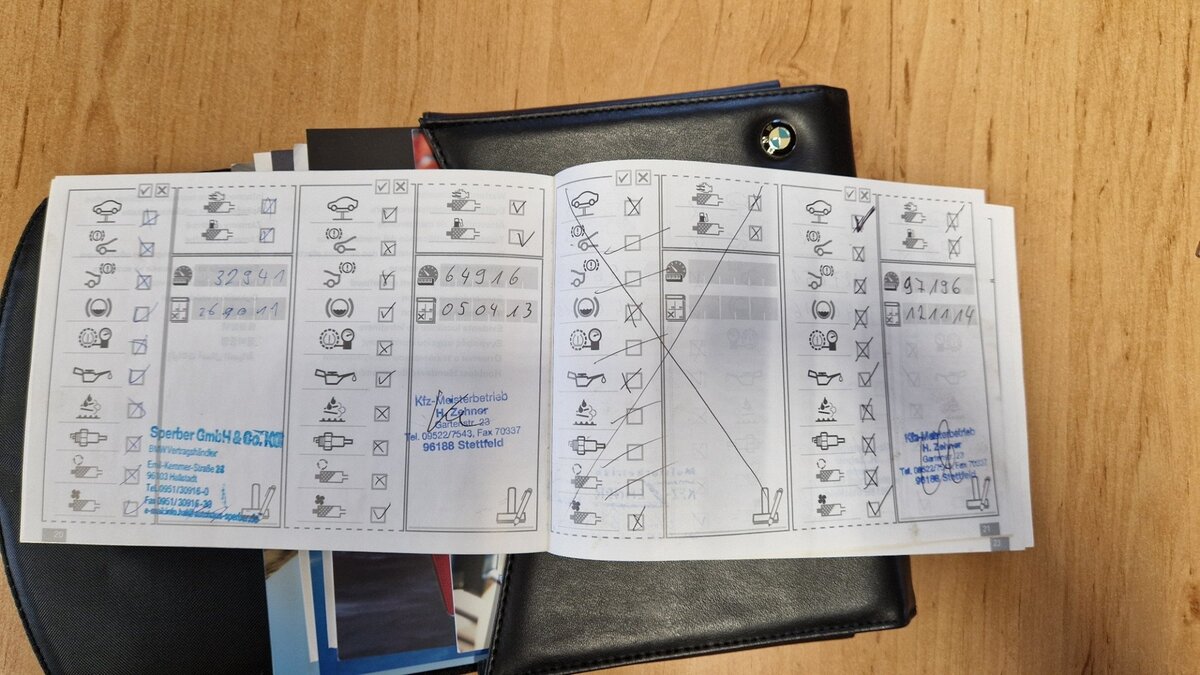 32941
64916
050413
Sperber GmbH & Co. KG
BMW Vertragshändler
Emil-Kemmer-Straße
96103 Hallstadt
Tel. 0951/30916-0
Fax 0951/30916-39
Kfz-Meisterbetrieb
H. Zehner
Gartenstr. 23
Tel. 09522/7543, Fax 70337
96188 Stettfeld
20
97196
121114
Kfz-Meisterbetrieb
H. Zehner
Gartenstr. 23
Tel. 09522/7543, Fax 70337
96188 Stettfeld
21
23